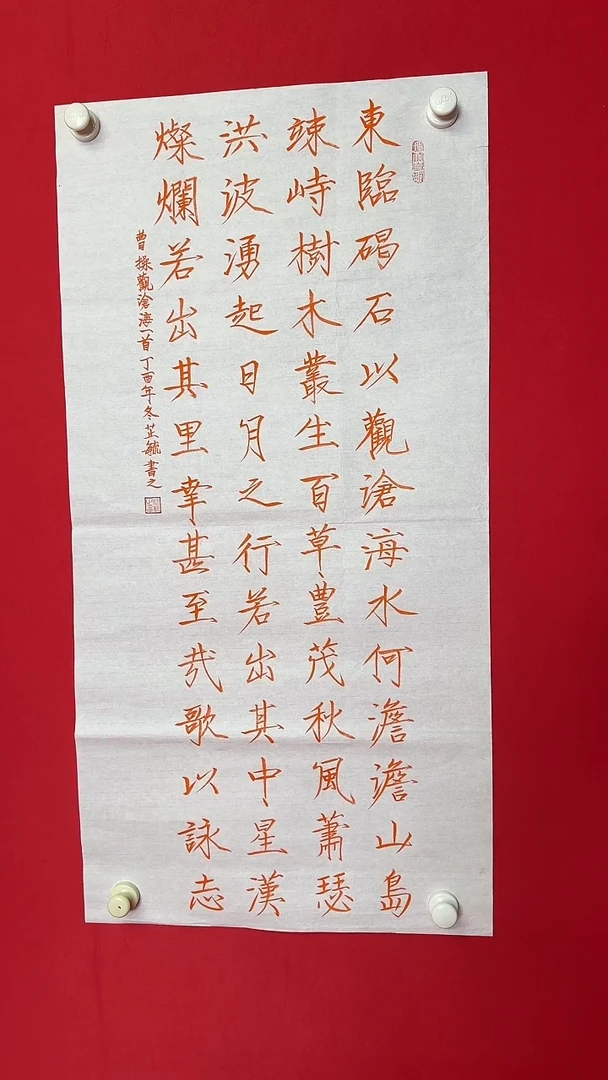 東臨碣石以觀滄海水何澹澹山島
竦峙樹木叢生百草豐茂秋風蕭瑟
洪波湧起日月之行若出其中星漢
燦爛若出其里幸甚至哉歌以詠志
曹操觀滄海一首丁酉年冬芷毓書之